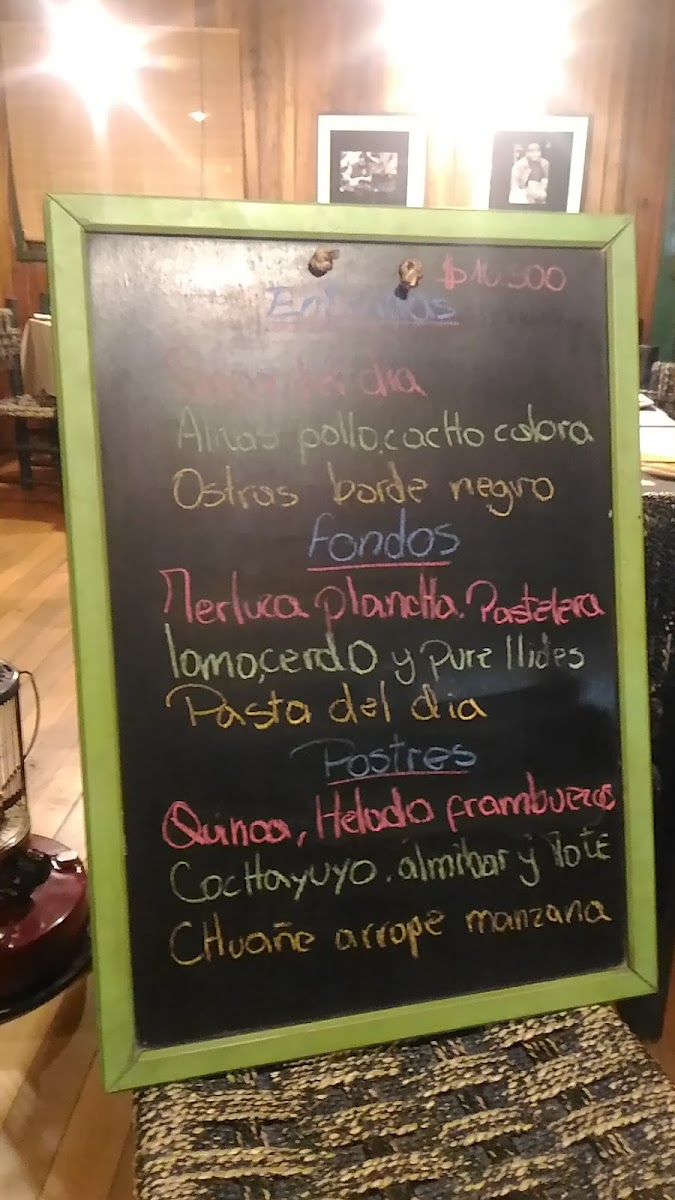 $10.500
Entradas
del dia
Alitas pollo, cacho cabra
Ostras borde negro
Fondos
Merluza plancHa. Pastelera
lomo, cerdo y pure llides
Pasta del dia
Postres
Quinoa, Helado frambuezas
CocHayuyo. almibar y Mote
CHuañe arrope manzana